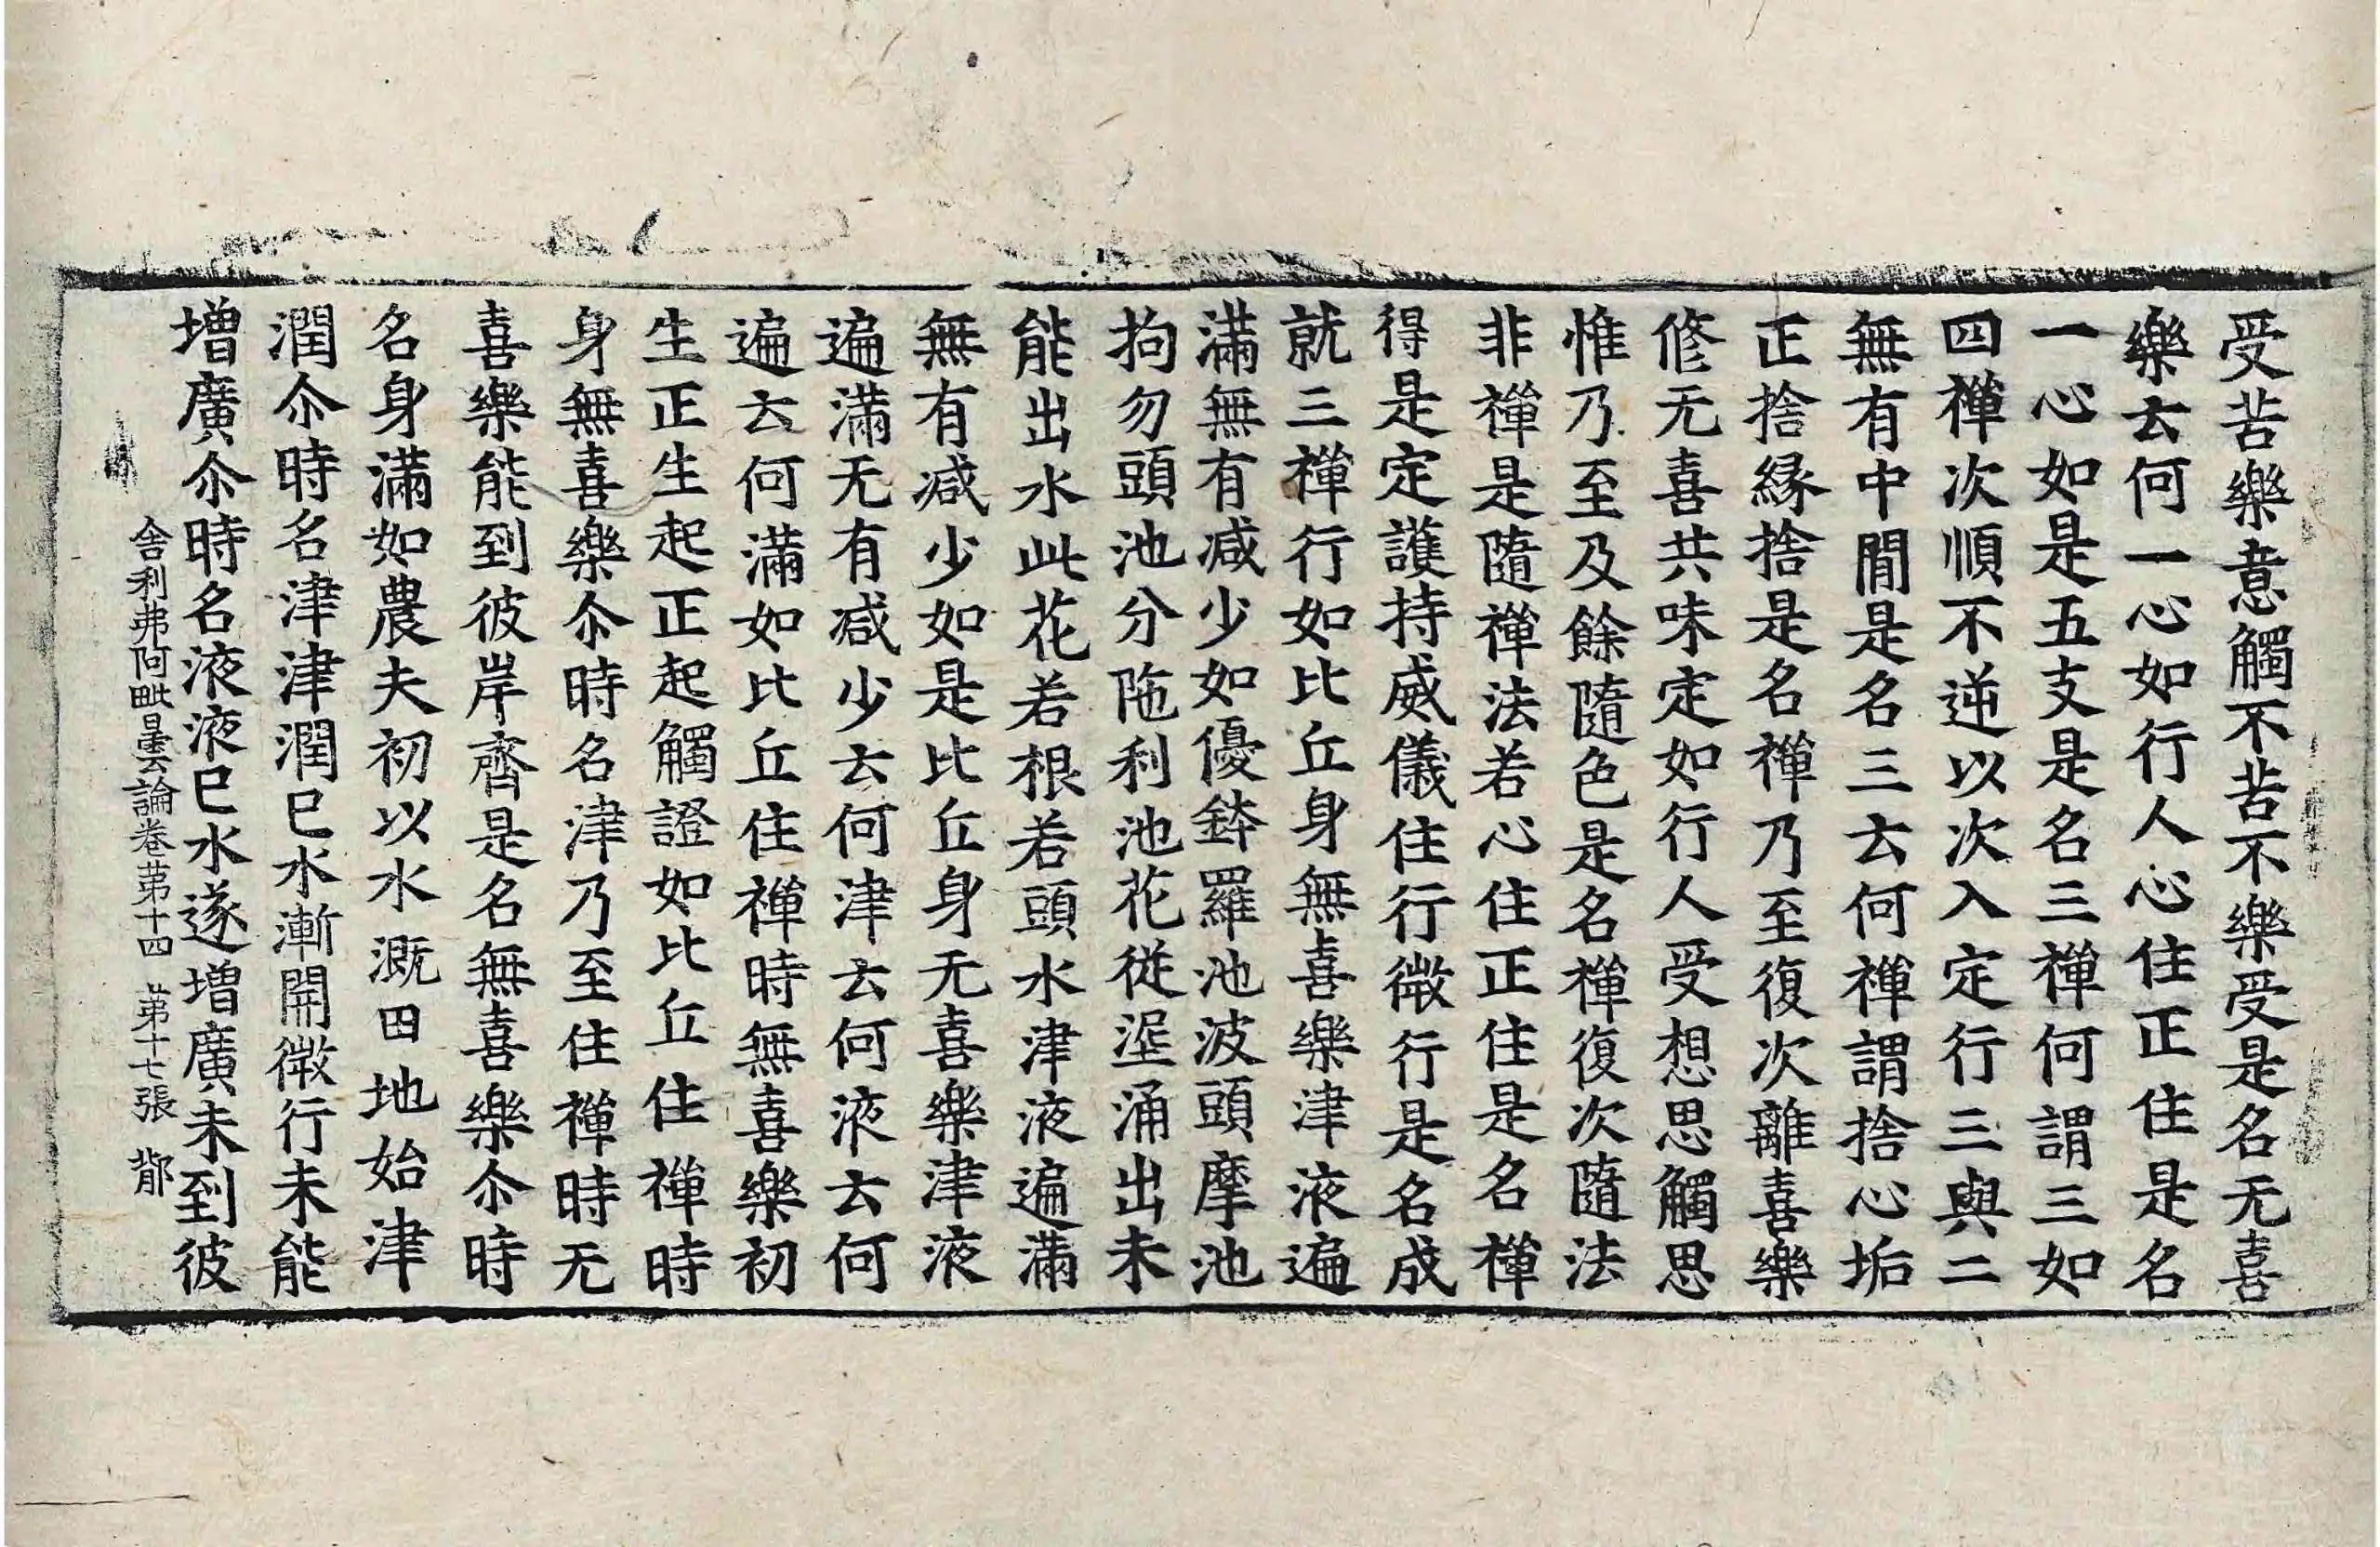 受苦樂意觸不苦不樂受是名无喜
樂云何一心如行人心住正住是名
一心如是五支是名三禪何謂三如
四禪次順不逆以次入定行三與二
無有中間是名三云何禪謂捨心垢
正捨緣捨是名禪乃至復次離喜樂
修无喜共味定如行人受想思觸思
惟乃至及餘隨色是名禪復次隨法
非禪是隨禪法若心住正住是名禪
得是定護持威儀住行微行是名成
就三禪行如比丘身無喜樂津液遍
滿無有减少如優鉢羅池波頭摩池
拘勿頭池分陁利池花從埿涌出未
能出水此花若根若頭水津液遍滿
無有减少如是比丘身无喜樂津液
遍滿无有减少云何津云何液云何
遍云何滿如比丘住禪時無喜樂初
生正生起正起觸證如比丘住禪時
身無喜樂尒時名津乃至住禪時无
喜樂能到彼岸齊是名無喜樂尒時
名身滿如農夫初以水溉田地始津
潤尒時名津津潤已水漸開微行未能
增廣尒時名液液已水遂增廣未到彼
舍利弗阿毗曇論卷苐十四 苐十七張 鄁